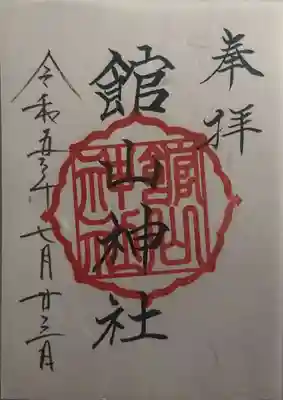 奉拝
館山神社
令和五年七月廿三日
館山
神社